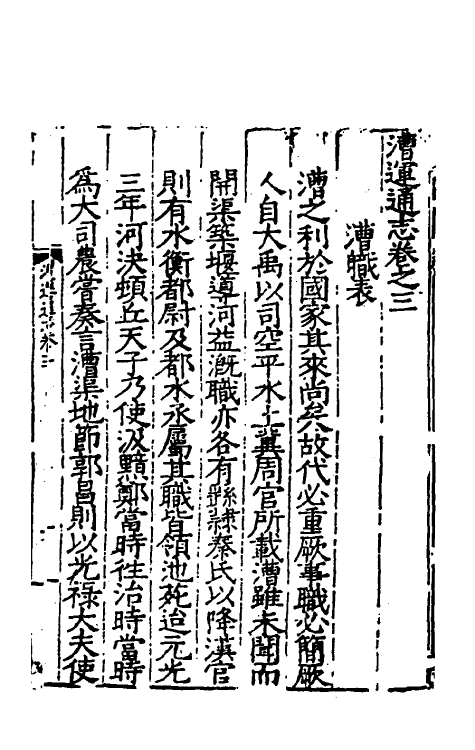 漕運通志卷之三
漕職表
漕之利於國家其來尚矣故代必重厥事職必簡厥
人自大禹以司空平水土冀周官所載漕雖未聞而
開渠築堰導河益漑職亦各有縣隷秦氏以降漢官
則有水衡都尉及都水丞屬其職皆領池苑迨元光
三年河决頓丘天子乃使汲黯鄭當時徃治時當時
為大司農嘗奏言漕渠地節郭昌則以光禄大夫使
漕運通志卷三